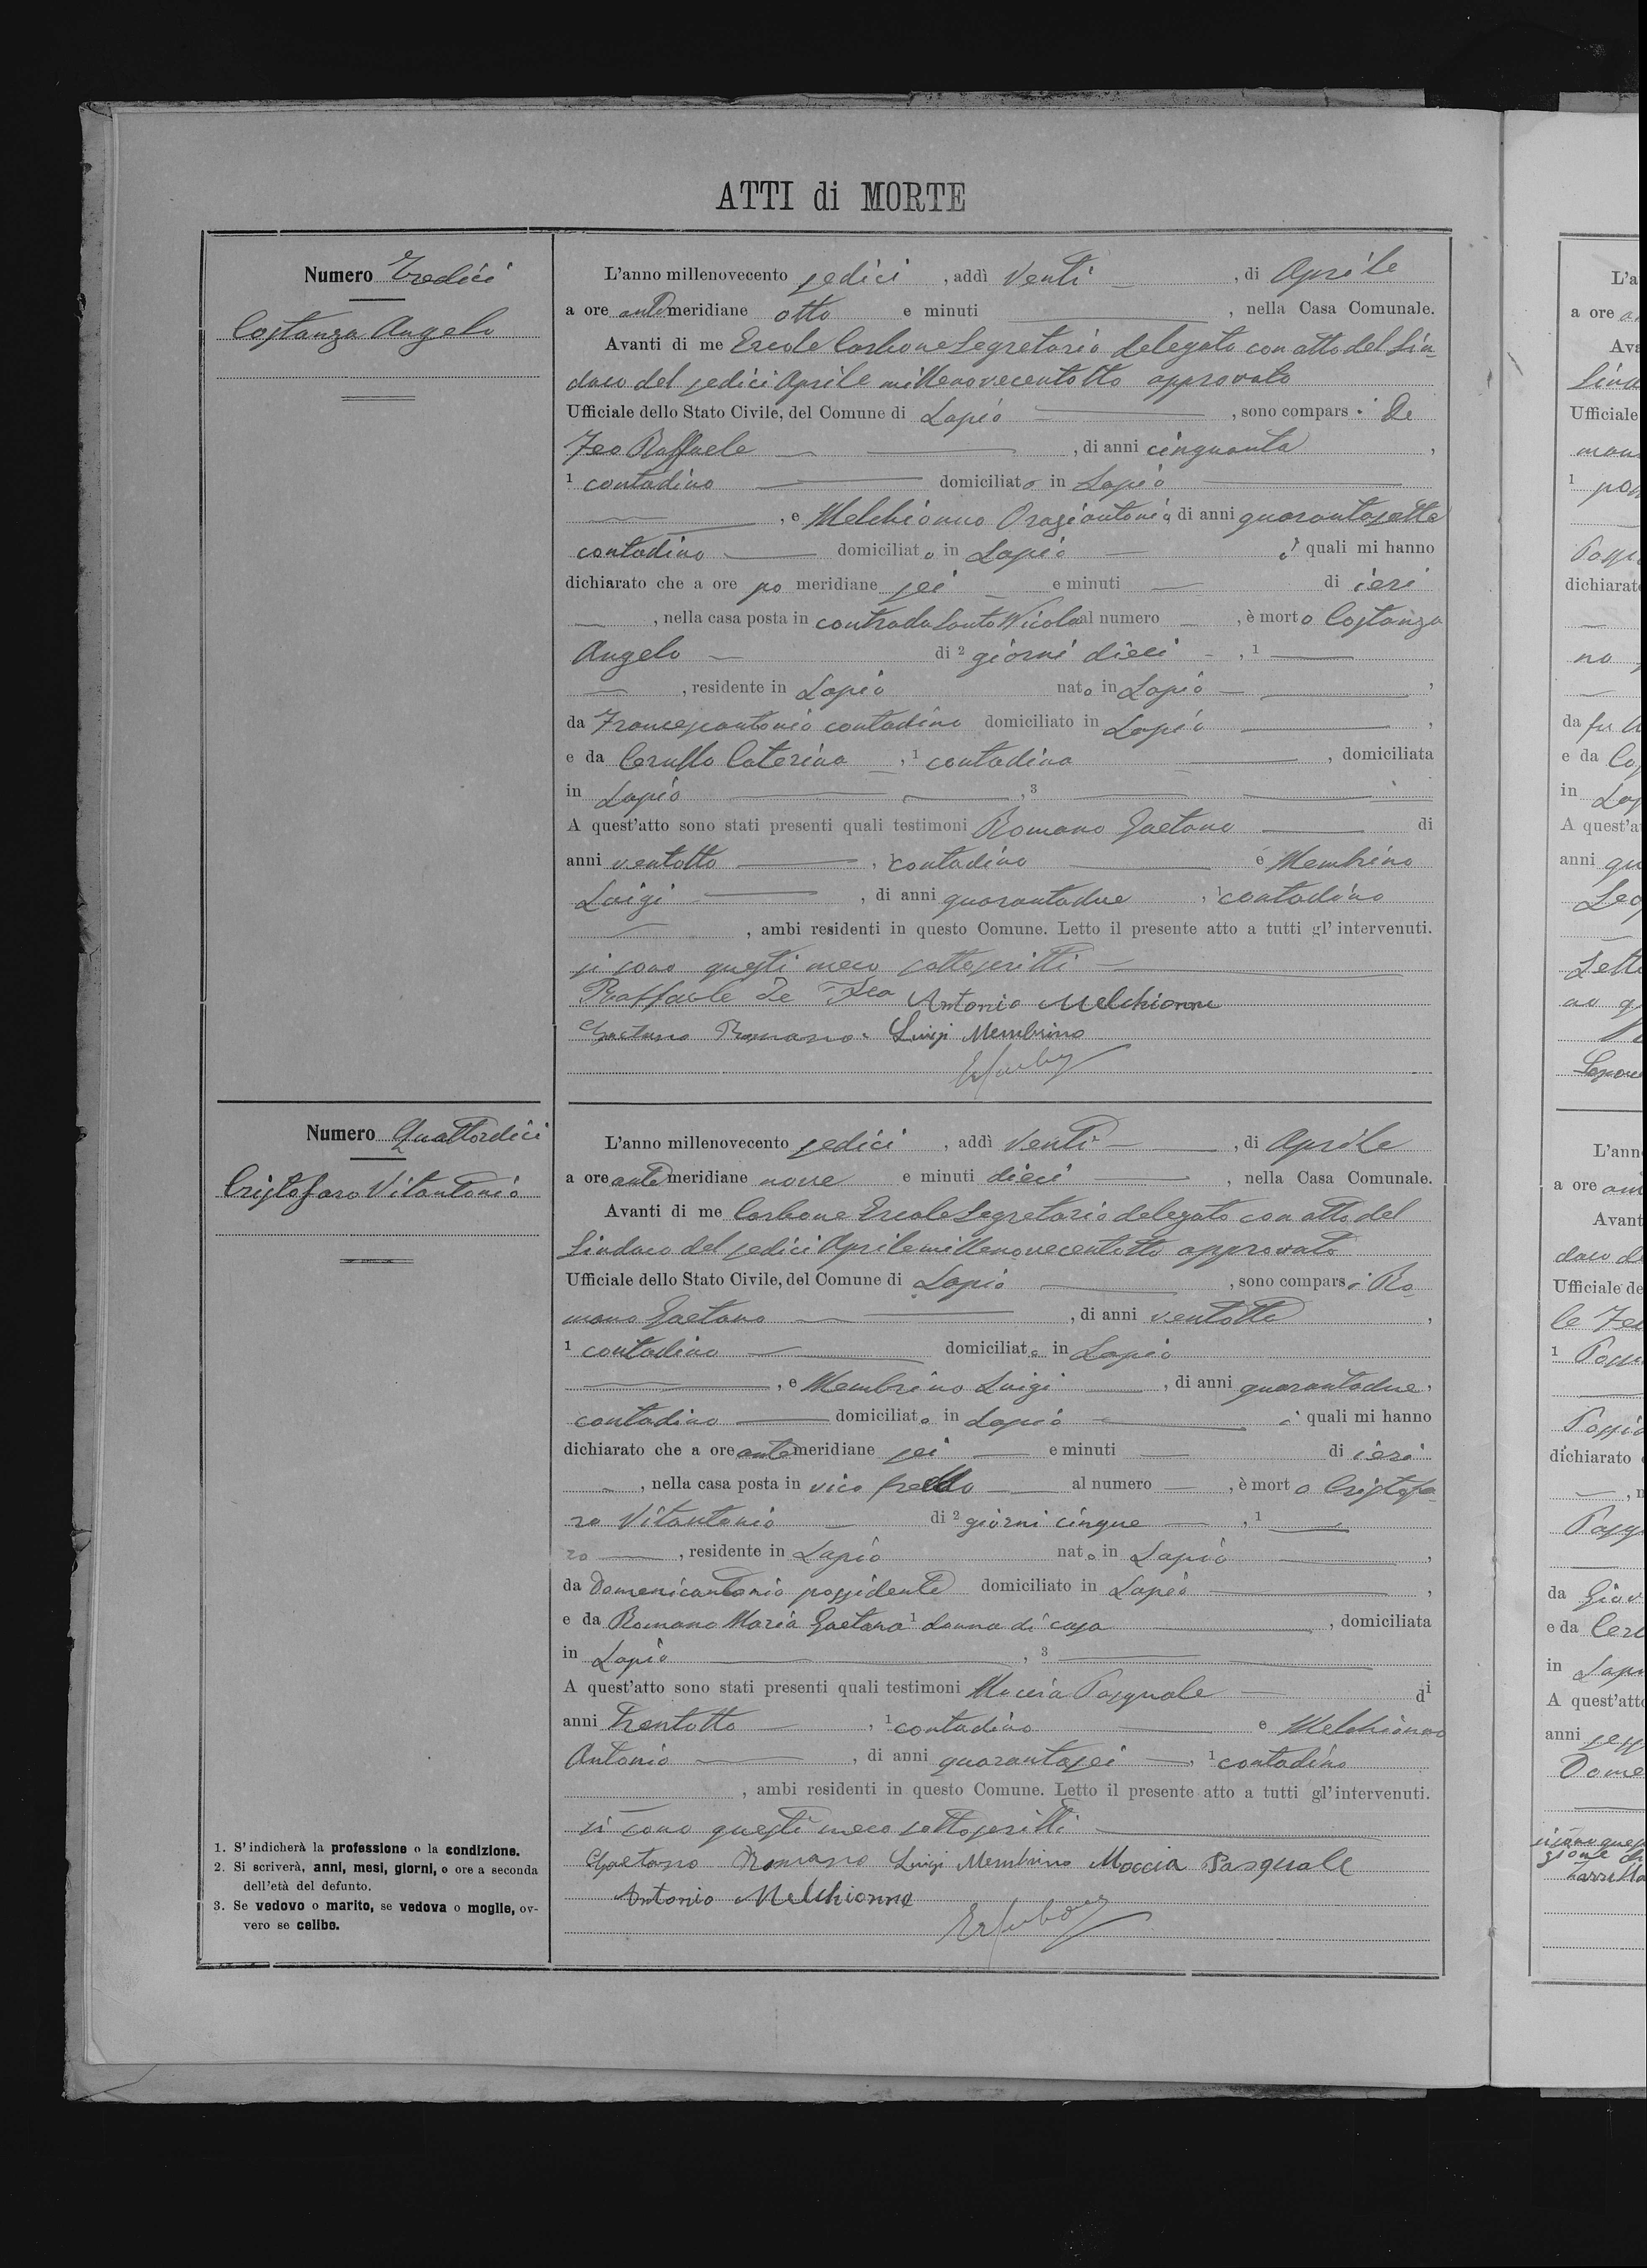 ATTI di MORTE
Numero Tredici
Costanza Angelo
L'anno millenovecento sedici, addì venti, di Aprile
a ore antemeridiane otto e minuti, nella Casa Comunale.
Avanti di me Ercole Carbone Segretario delegato con atto del Sin-
daco del sedici Aprile millenovecentotto approvato
Ufficiale dello Stato Civile, del Comune di Lapio, sono comparsi De
Feo Raffaele, di anni cinquanta,
1 contadino domiciliato in Lapio
, e Melchionno Oraziantonio, di anni quarantasette
contadino domiciliato in Lapio i quali mi hanno
dichiarato che a ore pomeridiane sei e minuti di ieri
, nella casa posta in contrada Santo Nicola al numero, è morto Costanza
Angelo di 2 giorni dieci, 1
, residente in Lapio nato in Lapio,
da Francescantonio contadino domiciliato in Lapio,
e da Cerullo Caterina, 1 contadina, domiciliata
in Lapio, 3
A quest'atto sono stati presenti quali testimoni Romano Gaetano di
anni ventotto, contadino e Membrino
Luigi, di anni quarantadue, contadino
, ambi residenti in questo Comune. Letto il presente atto a tutti gl'intervenuti.
si sono questi meco sottoscritti
Raffaele De Feo Antonio Melchionne
Gaetano Romano Luigi Membrino
Numero Quattordici
Cristofaro Vitantonio
L'anno millenovecento sedici, addì venti, di Aprile
a ore antemeridiane nove e minuti dieci, nella Casa Comunale.
Avanti di me Carbone Ercole Segretario delegato con atto del
Sindaco del sedici Aprile millenovecentotto approvato
Ufficiale dello Stato Civile, del Comune di Lapio, sono comparsi Ro-
mano Gaetano, di anni ventotto,
1 contadino domiciliato in Lapio
, e Membrino Luigi, di anni quarantadue,
contadino domiciliato in Lapio i quali mi hanno
dichiarato che a ore antemeridiane sei e minuti di ieri
, nella casa posta in vico freddo al numero, è morto Cristofa-
ro Vitantonio di 2 giorni cinque, 1
ro, residente in Lapio nato in Lapio,
da Domenicantonio possidente domiciliato in Lapio,
e da Romano Maria Gaetana 1 donna di casa, domiciliata
in Lapio, 3
A quest'atto sono stati presenti quali testimoni Moccia Pasquale di
anni trentotto, 1 contadino e Melchionno
Antonio, di anni quarantasei, 1 contadino
, ambi residenti in questo Comune. Letto il presente atto a tutti gl'intervenuti.
si sono questi meco sottoscritti
Gaetano Romano Luigi Membrino Moccia Pasquale
Antonio Melchionne
1. S'indicherà la professione o la condizione.
2. Si scriverà, anni, mesi, giorni, o ore a seconda
dell'età del defunto.
3. Se vedovo o marito, se vedova o moglie, ov-
vero se celibe.